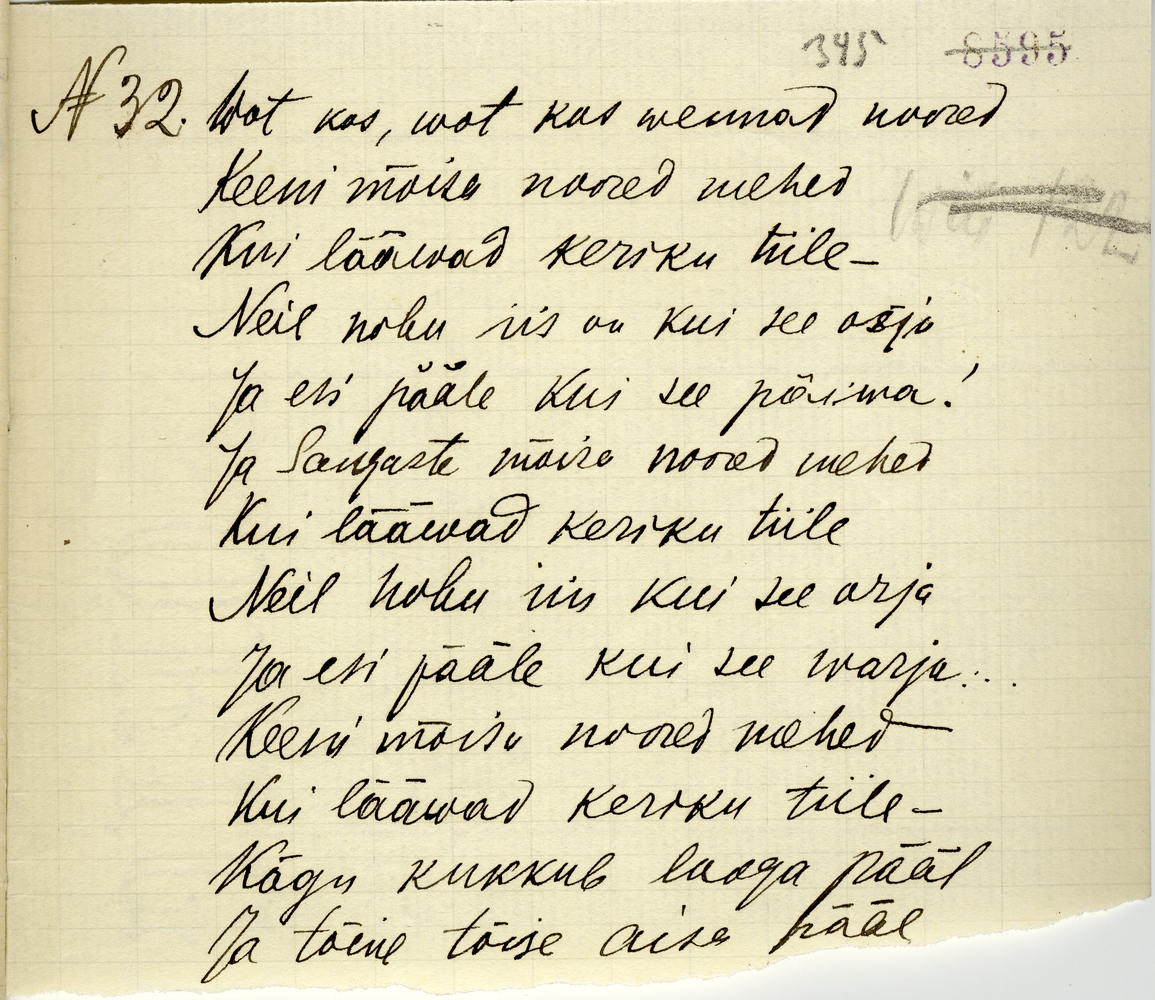 345 8595
№ 32. Wot kos, wot kos wennad noored
Keeni mõisa noored mehed
Kui lääwad keriku tiile –
Neil hobu iis on kui see orja
Ja esi pääle kui see päiwa!
Ja Sangaste mõisa noored mehed
Kui lääwad keriku tiile
Neil hobu iin kui see orja
Ja esi pääle kui see warja...
Keeni mõisa noored mehed
Kui lääwad keriku tiile –
Kägu kukkub looga pääl
Ja tõine tõise aisa pääl